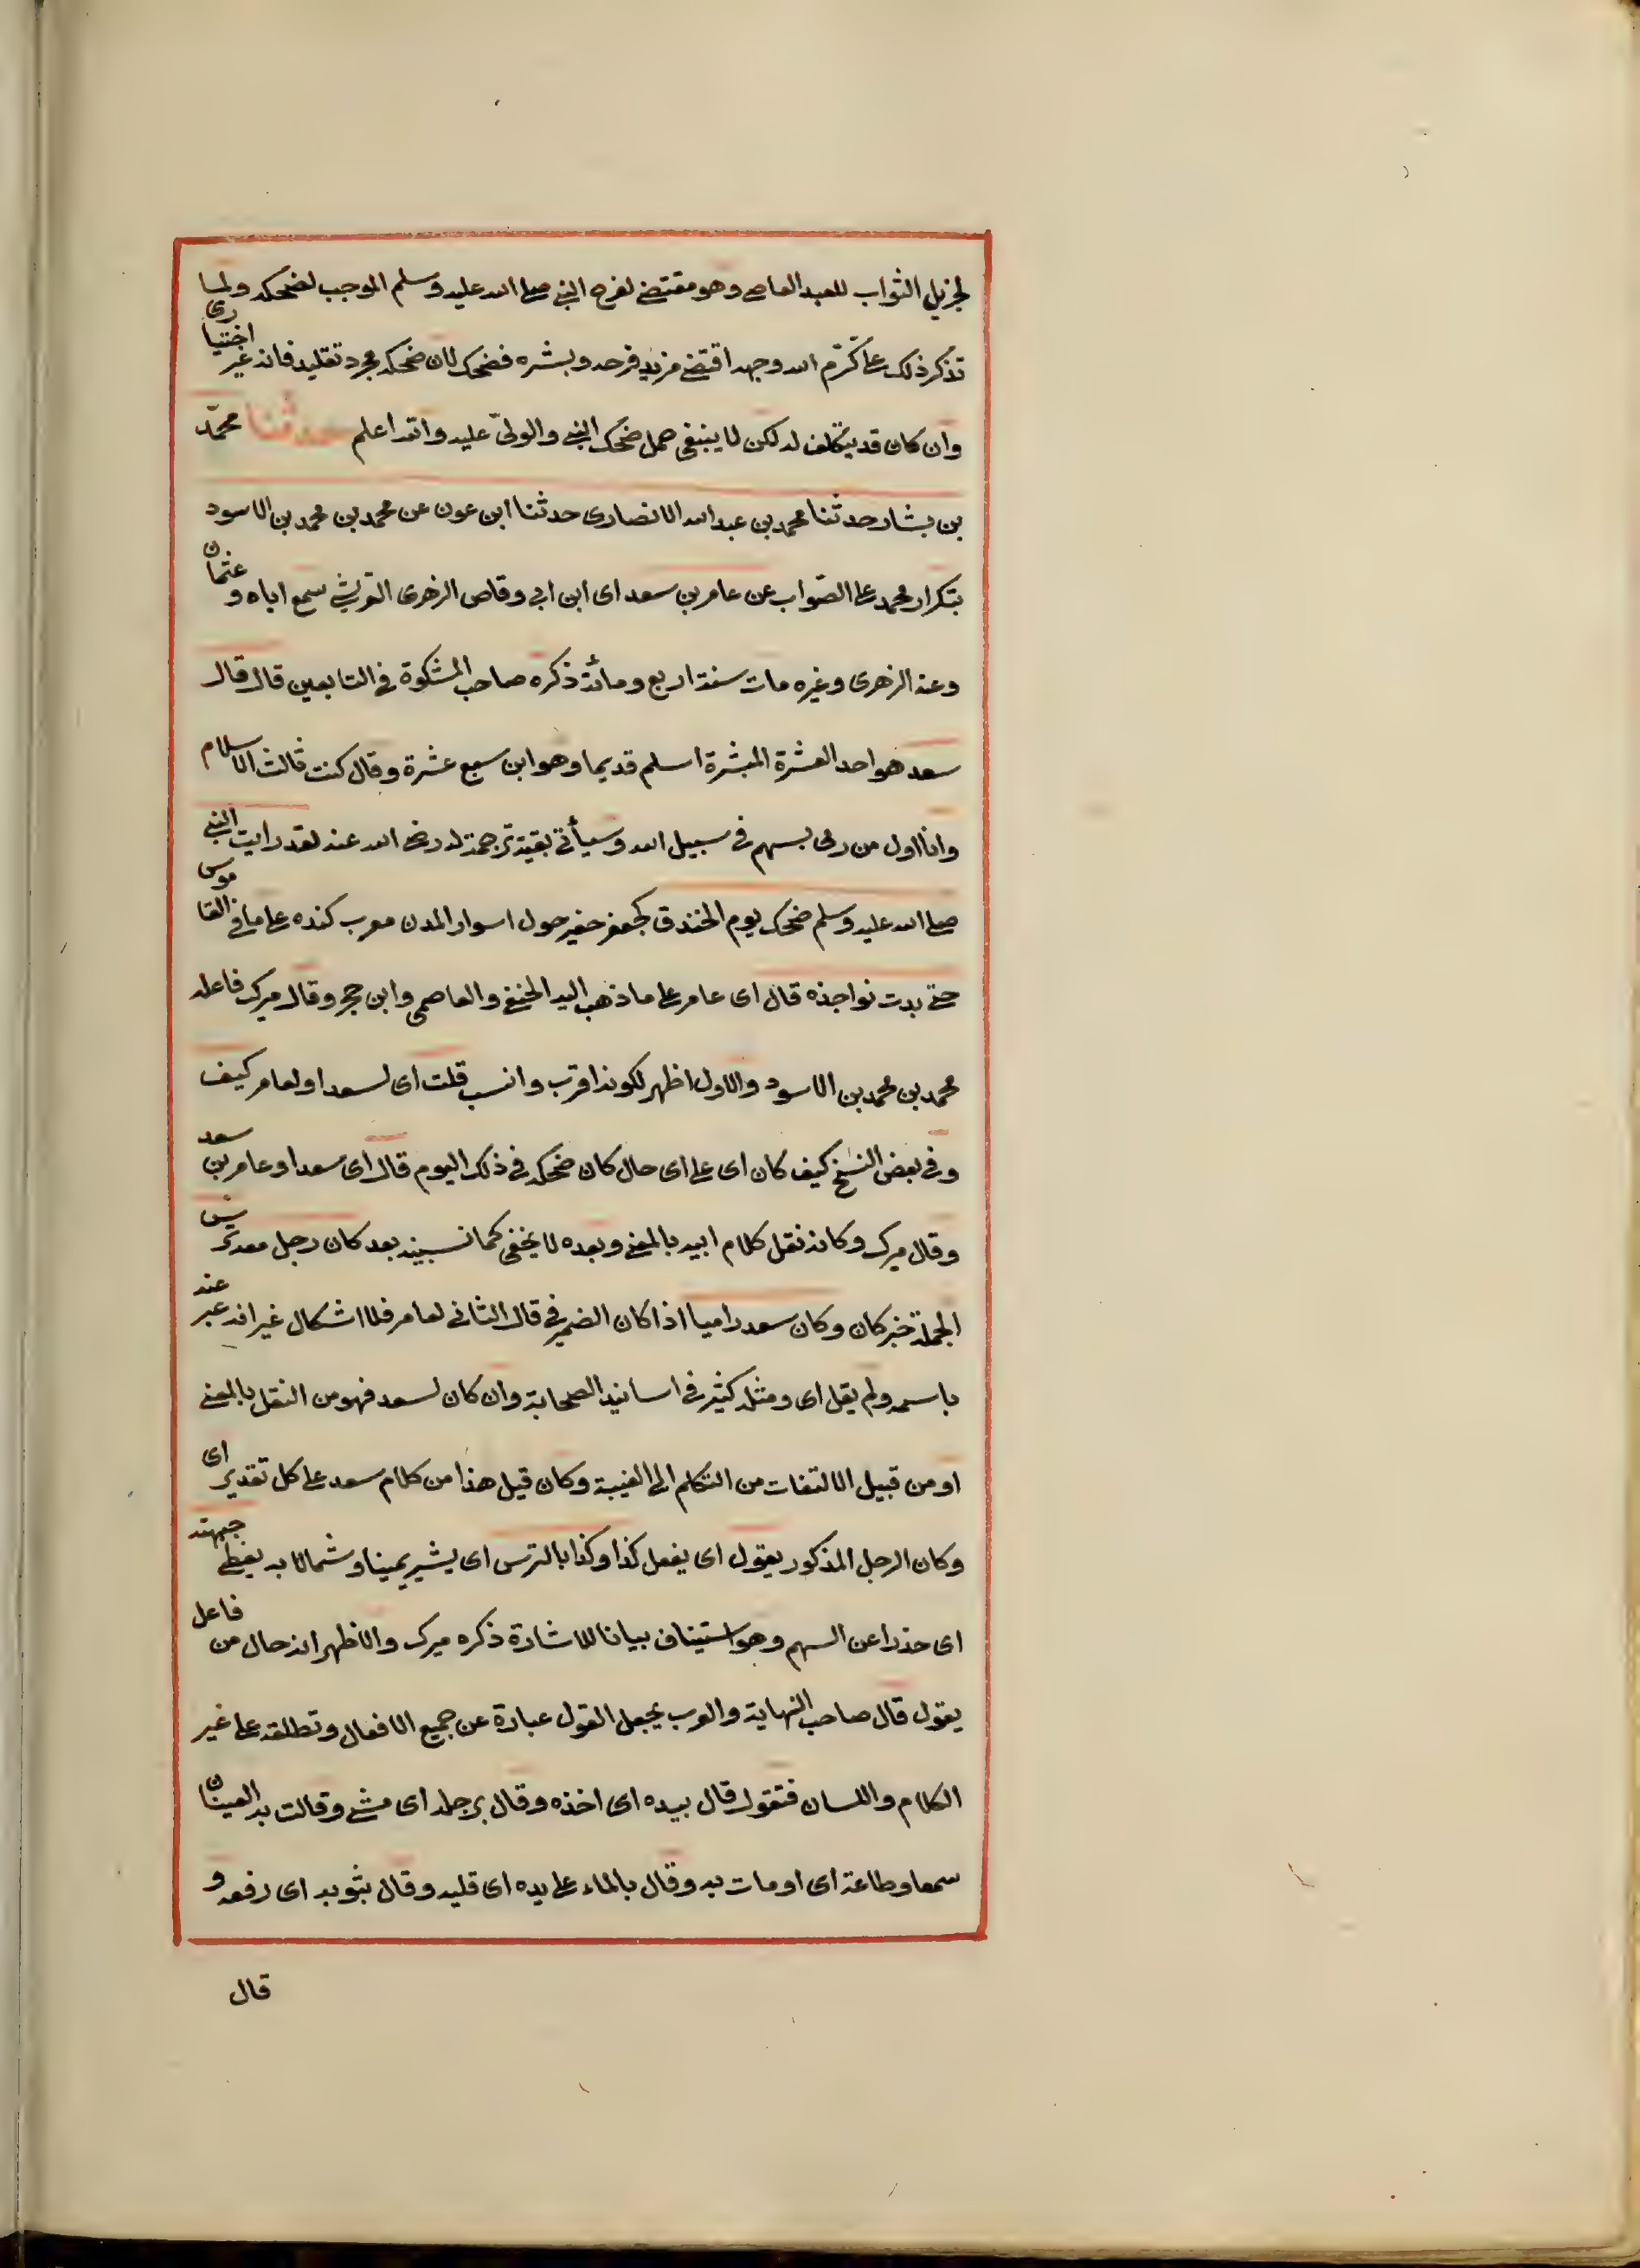 لجزيل الثواب للعبد العاصي وهو مقتضي لفرح النبي صلى الله عليه وسلم الموجب لضحكه ولما
تذكر ذلك على كرّم الله وجهه اقتضي مزيد فرحه وبشره فضحك لان ضحكه مجرد تقليد فانه غير اختياري
وان كان قد يتكلف له لكن لا ينبغي حمل ضحك النبي والولي عليه والله اعلم حدثنا محمّد
بن بشار حدثنا محمد بن عبد الله الانصاري حدثنا ابن عون عن محمد بن محمد بن الاسود
بتكرار محمد على الصّواب عن عامر بن سعد اى ابن ابي وقاص الزهرى القريشي سمع اباه وعثمان
وعنه الزهرى وغيره مات سنة اربع ومائة ذكره صاحب المشكوة في التابعين قال قال
سعد هو احد العشرة المبشرة اسلم قديما وهو ابن سبع عشرة وقال كنت ثالث الاسلام
وانا اول من رمى بسهم في سبيل الله وسيأتي بقية ترجمة له رضى الله عنه لقد رايت النبي
صلى الله عليه وسلم ضحك يوم الخندق كجعفر حفير حول اسوار المدن معرب كنده على ما في القاموس
حتى بدت نواجذه قال اى عامر على ما ذهب اليه الحنفي والعاصمى وابن حجر وقال ميرك فاعله
محمد بن محمد بن الاسود والاول اظهر لكونه اقرب وانسب قلت اى لسعد او لعامر كيف
وفي بعض النسخ كيف كان اى على اى حال كان ضحكه في ذلك اليوم قال اى سعد او عامر بن سعد
وقال ميرك وكانه نقل كلام ابيه بالمعني وبعده لا يخفى كما نسبينه بعد كان رجل معه ترس
الجملة خبر كان وكان سعد راميا اذا كان الضمير في قال الثاني لعامر فلا اشكال غير انه عبر عنه
باسمه ولم يقل ابى ومثله كثير في اسانيد الصحابة وان كان لسعد فهو من النقل بالمعني
او من قبيل الالتفات من التكلم الى الغيبة وكان قيل هذا من كلام سعد على كل تقدير اى
وكان الرجل المذكور يقول اى يفعل كذا وكذا بالترس اى يشير يمينا وشمالا به يغطى جبهته
اى حذرا عن السهم وهو استيناف بيانا للاشارة ذكره ميرك والاظهر انه حال من فاعل
يقول قال صاحب النهاية والعرب يجعل القول عبارة عن جميع الافعال وتطلقه على غير
الكلام واللسان فتقول قال بيده اى اخذه وقال برجله اى مشى وقالت به العينان
سمعا وطاعة اى اومات به وقال بالماء على يده اى قلبه وقال بثوبه اى رفعه و
قال